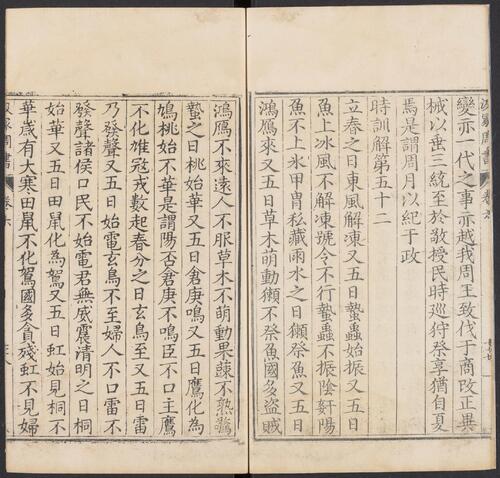 變亦一代之事亦越我周王致伐于商改正異
械以垂三統至於敬授民時巡狩祭享猶自夏
焉是謂周月以紀于政
時訓解第五十二
立春之日東風解凍又五日蟄蟲始振又五日
魚上冰風不解凍號令不行蟄蟲不振陰奸陽
魚不上氷甲胄私藏雨水之日獺祭魚又五日
鴻鴈來又五日草木萌動獺不祭魚國多盜賊
鴻鴈不來遠人不服草木不萌動果蔬不熟驚
蟄之日桃始華又五日倉庚鳴又五日鷹化為
鳩桃始不華是謂陽否倉庚不鳴臣不口主鷹
不化鳩寇戎數起春分之日玄鳥至又五日雷
乃發聲又五日始電玄鳥不至婦人不口雷不
發聲諸侯口民不始電君無威震清明之日桐
始華又五日田鼠化為鴽又五日虹始見桐不
華歲有大寒田鼠不化鴽國多貪殘虹不見婦
汲冢周書 卷六